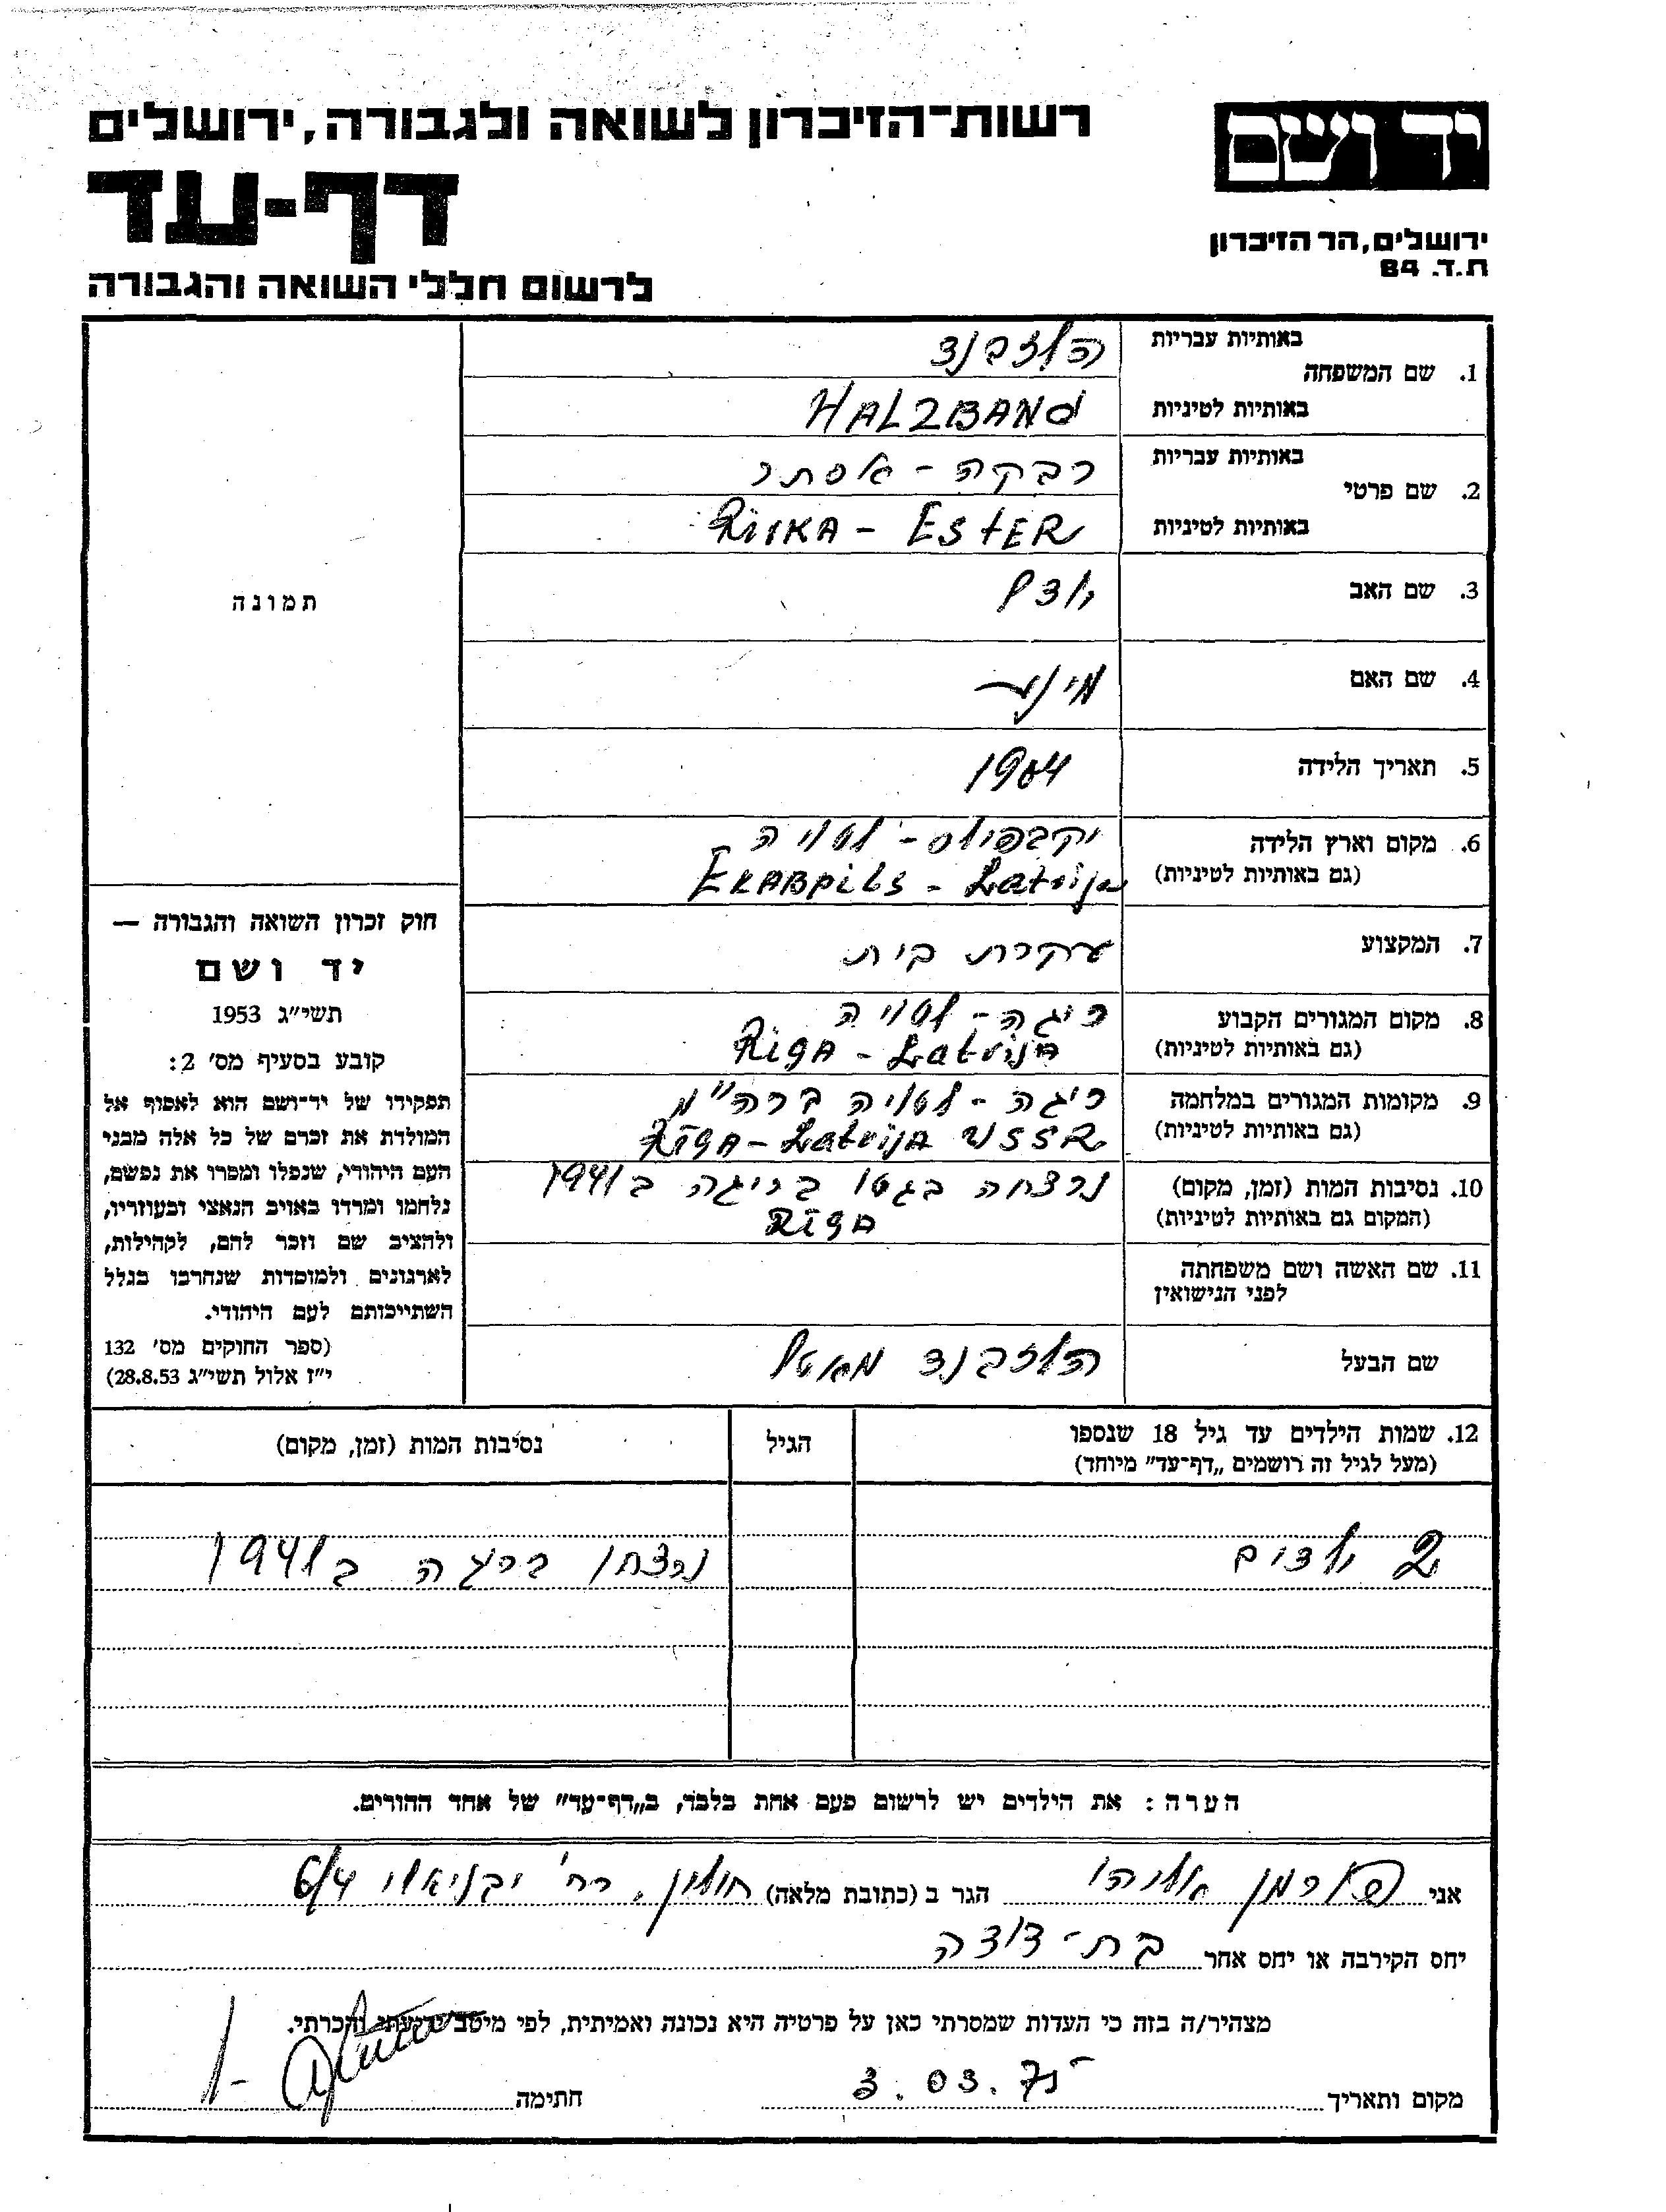 רשות־הזיכרון לשואה ולגבורה, ירושלים
יד ושם
דף-עד
ירושלים, הר הזיכרון
ת.ד. 84
לרשום חללי השואה והגבורה
באותיות עבריות
הלזבנד
1. שם המשפחה
באותיות לטיניות
HALZBAND
באותיות עבריות
רבקה - אסתר
2. שם פרטי
באותיות לטיניות
RIVKA - ESTER
3. שם האב
4. שם האם
5. תאריך הלידה 1904
6. מקום וארץ הלידה
יקבפילס - לטויה
(גם באותיות לטיניות)
EKABPILS - Latvija
7. המקצוע עקרת בית
8. מקום המגורים הקבוע
ריגה - לטויה
(גם באותיות לטיניות)
RIGA - Latvija
9. מקומות המגורים במלחמה
ריגה - לטויה ברה"מ
(גם באותיות לטיניות)
RIGA - Latvija USSR
10. נסיבות המות (זמן, מקום)
נרצחה בגטו בריגה ב 1941
(המקום גם באותיות לטיניות)
RIGA
11. שם האשה ושם משפחתה
לפני הנישואין
שם הבעל הלזבנד
תמונה
חוק זכרון השואה והגבורה —
יד ושם
תשי"ג 1953
קובע בסעיף מס' 2:
תפקידו של יד־ושם הוא לאסוף אל
המולדת את זכרם של כל אלה מבני
העם היהודי, שנפלו ומסרו את נפשם,
נלחמו ומרדו באויב הנאצי ובעוזריו,
ולהציב שם וזכר להם, לקהילות,
לארגונים ולמוסדות שנחרבו בגלל
השתייכותם לעם היהודי.
(ספר החוקים מס' 132
י"ז אלול תשי"ג 28.8.53)
12. שמות הילדים עד גיל 18 שנספו
(מעל לגיל זה רושמים „דף־עד" מיוחד)
הגיל
נסיבות המות (זמן, מקום)
2 ילדים נרצחו בריגה ב 1941
הערה: את הילדים יש לרשום פעם אחת בלבד, ב„דף־עד" של אחד ההורים.
אני פורמן אליהו הגר ב (כתובת מלאה) חולון, רח' יבניאלי 6/4
יחס הקירבה או יחס אחר בת-דודה
מצהיר/ה בזה כי העדות שמסרתי כאן על פרטיה היא נכונה ואמיתית, לפי מיטב ידיעתי והכרתי.
מקום ותאריך 3.03.75 חתימה